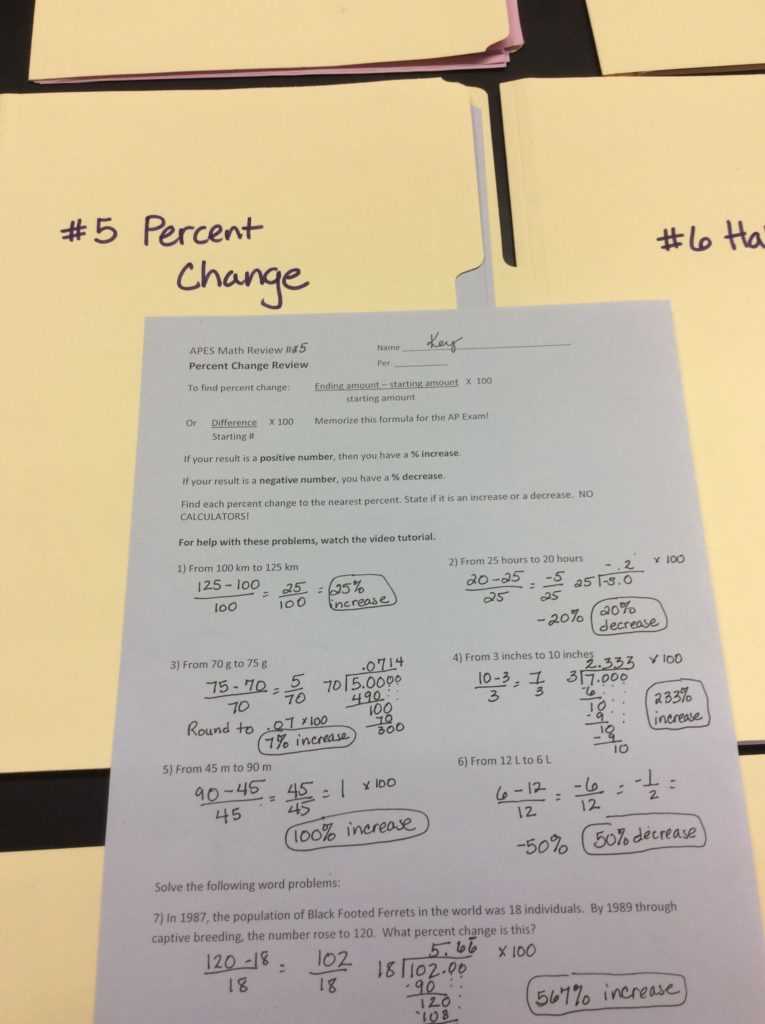 #5 Percent
Change
#6 Ha
APES Math Review #5
Name Key
Percent Change Review
Per.
To find percent change: Ending amount – starting amount X 100
starting amount
Or Difference X 100 Memorize this formula for the AP Exam!
Starting #
If your result is a positive number, then you have a % increase.
If your result is a negative number, you have a % decrease.
Find each percent change to the nearest percent. State if it is an increase or a decrease. NO
CALCULATORS!
For help with these problems, watch the video tutorial.
1) From 100 km to 125 km
125 - 100 = 25 = 25%
100 100 increase
2) From 25 hours to 20 hours
20 - 25 = -5 25 -5.0 -.2 x 100
25 25
-20% 20%
decrease
3) From 70 g to 75 g
75 - 70 = 5 70 5.0000 .0714
70 70
490
100
70
300
Round to .07 x 100
7% increase
4) From 3 inches to 10 inches
10 - 3 = 7 3 7.000 2.333 x 100
3 3
6
10
-9
10
-9
10
233%
increase
5) From 45 m to 90 m
90 - 45 = 45 = 1 x 100
45 45
100% increase
6) From 12 L to 6 L
6 - 12 = -6 = -1 =
12 12 2
-50% 50% decrease
Solve the following word problems:
7) In 1987, the population of Black Footed Ferrets in the world was 18 individuals. By 1989 through
captive breeding, the number rose to 120. What percent change is this?
120 - 18 = 102 18 102.00 5.66 x 100
18 18
90
120
108
567% increase